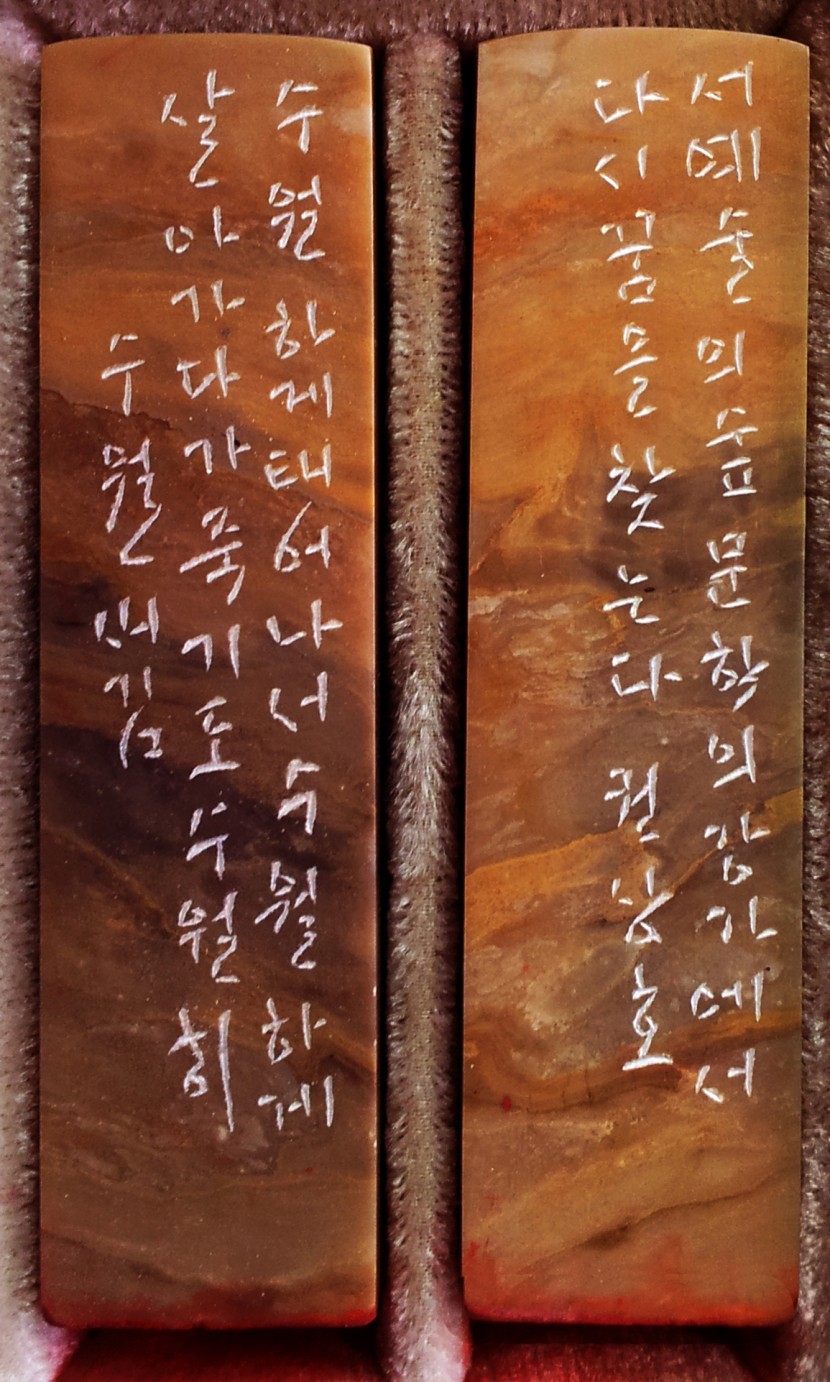 서예술의숲문학의강가에서
다시꿈을찾는다 권상호
수월하게태어나서수월하게
살아가다가죽기도수월히
수월새김